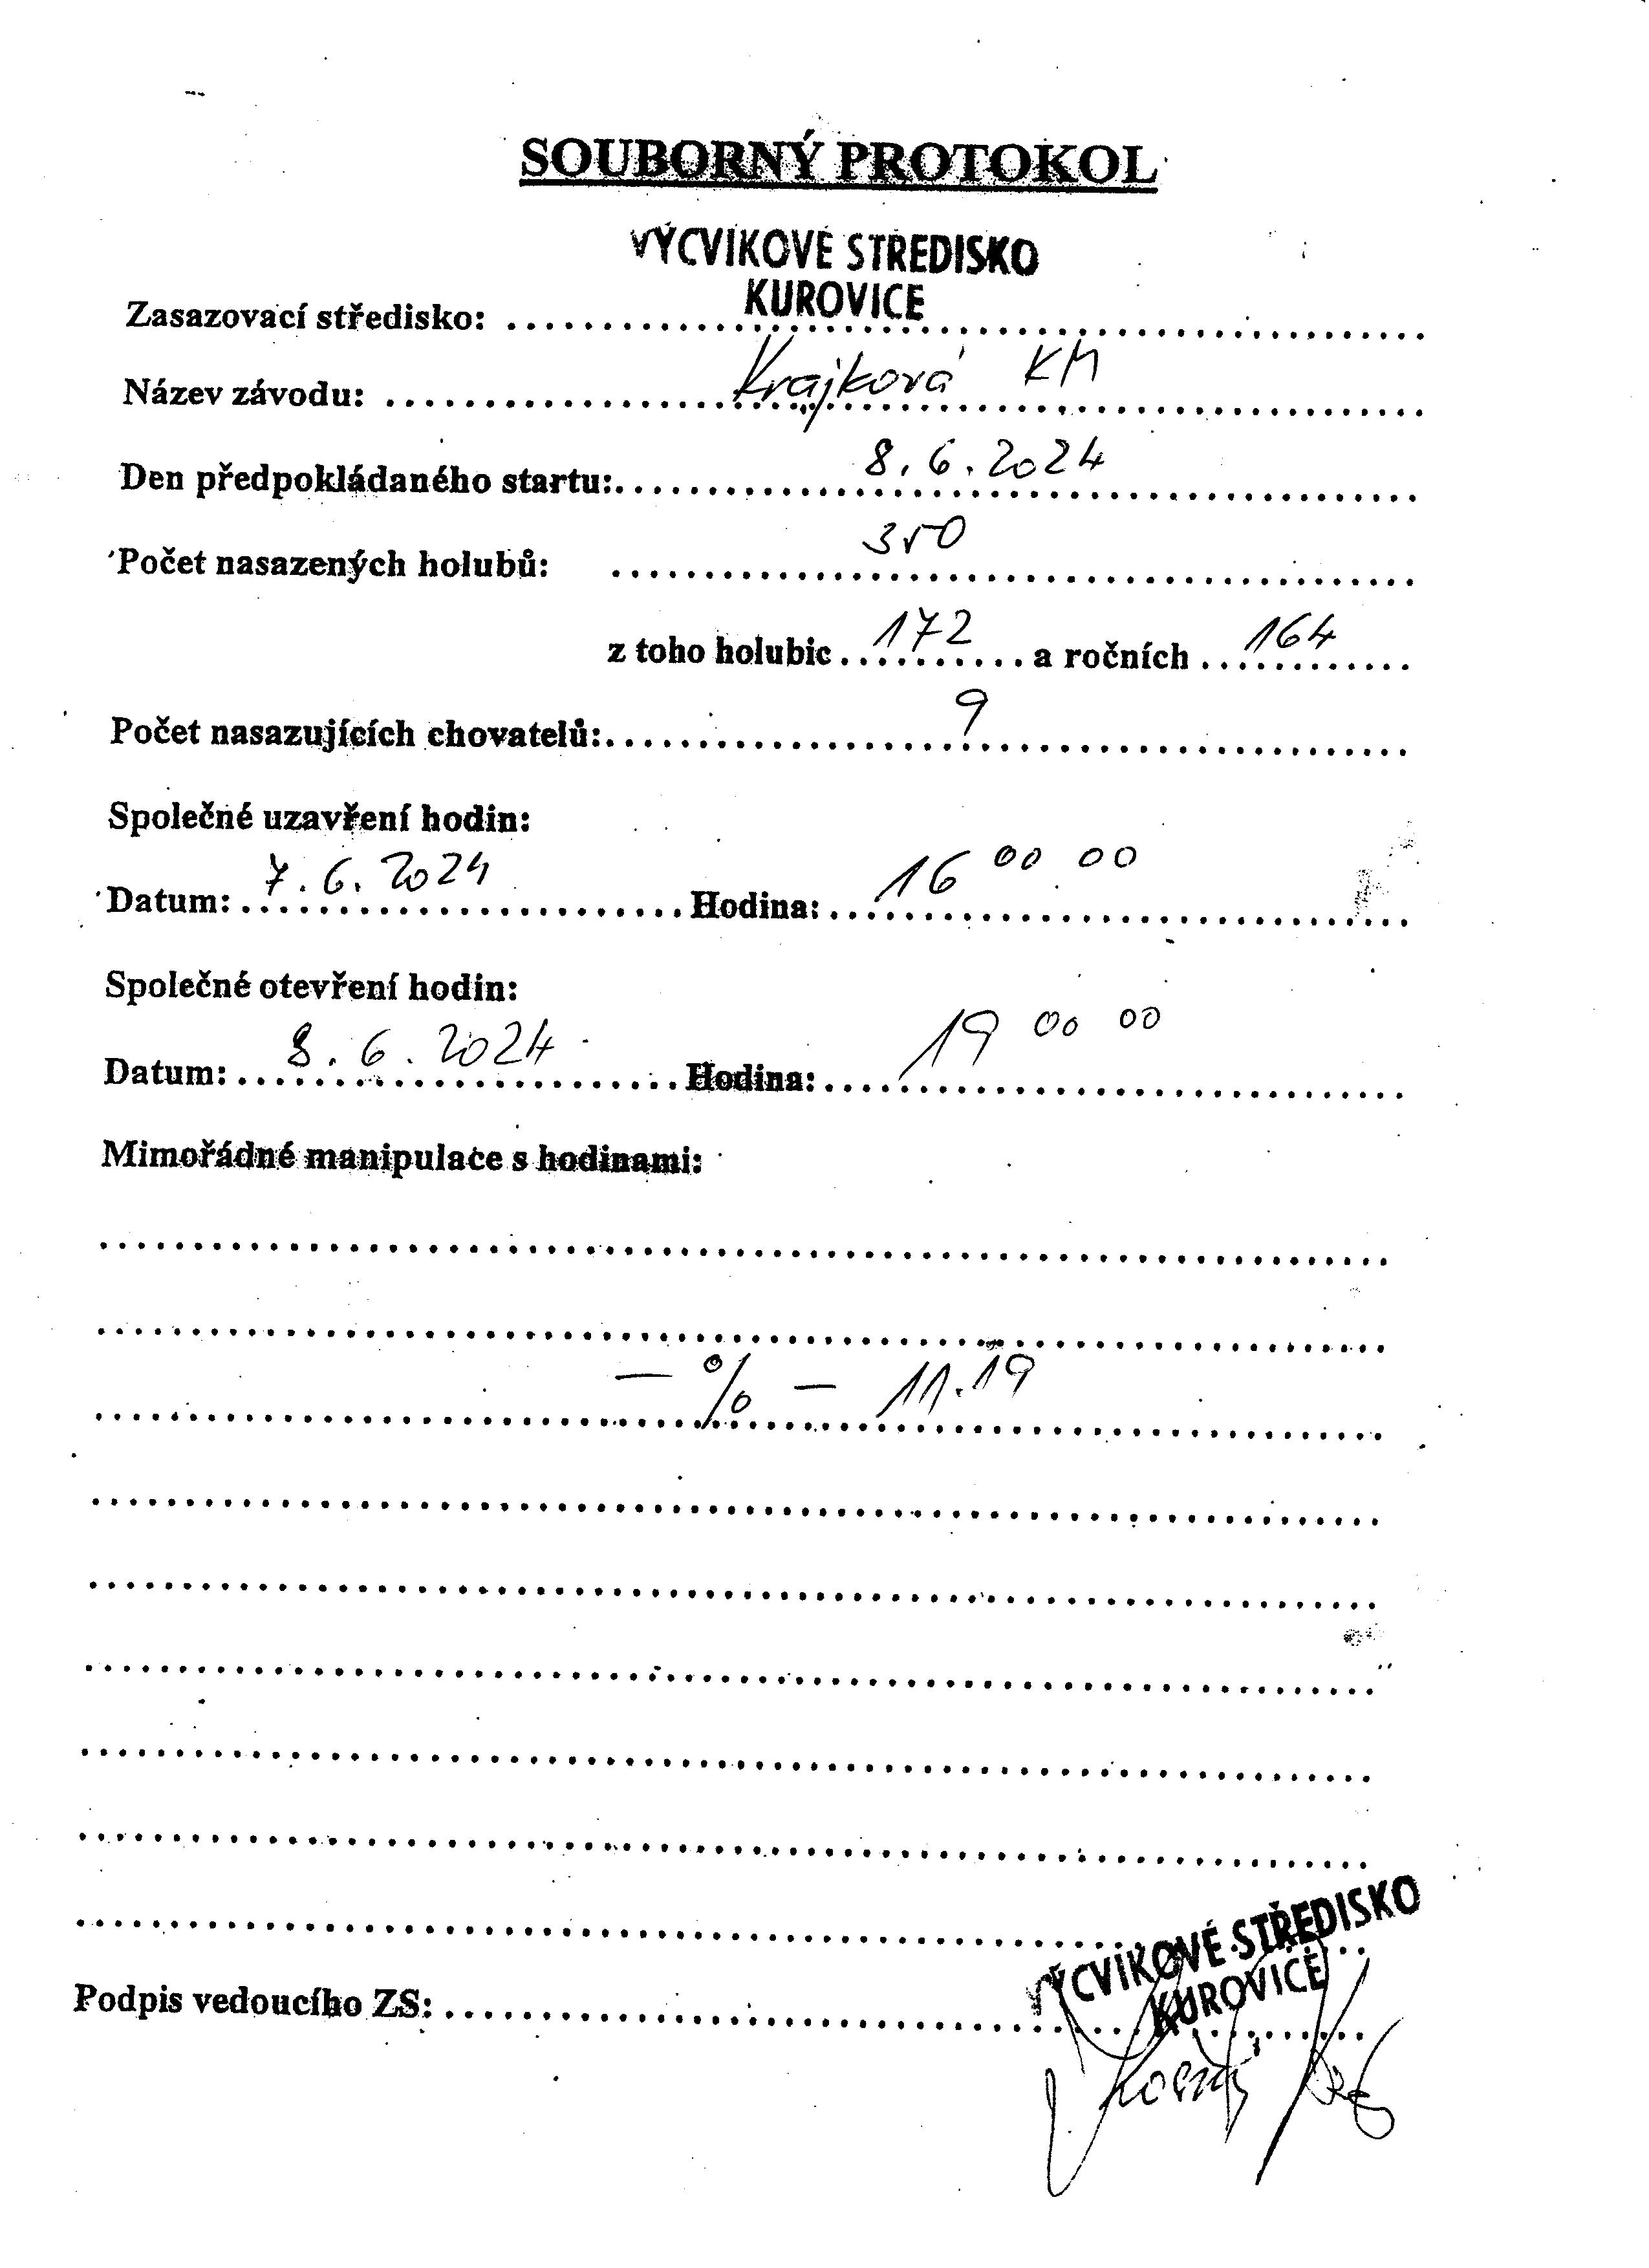 SOUBORNÝ PROTOKOL
VÝCVIKOVÉ STŘEDISKO
KUROVICE
Zasazovací středisko:
Název závodu: Krajková KM
Den předpokládaného startu: 8.6.2024
Počet nasazených holubů: 350
z toho holubic 172 a ročních 164
Počet nasazujících chovatelů: 9
Společné uzavření hodin:
Datum: 7.6.2024 Hodina: 16 00 00
Společné otevření hodin:
Datum: 8.6.2024 Hodina: 19 00 00
Mimořádné manipulace s hodinami:
— % — 11.19
VÝCVIKOVÉ STŘEDISKO
KUROVICE
Podpis vedoucího ZS: